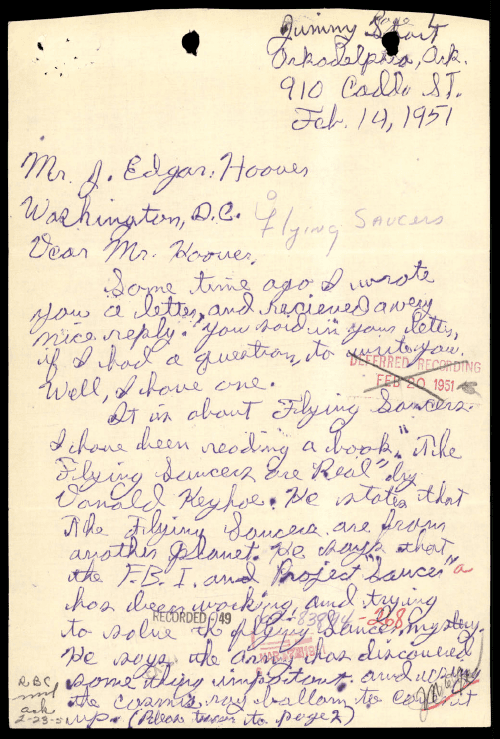 Page 1
Jimmy
Arkadelphia, Ark.
910 Caddo St.
Feb. 14, 1951
Mr. J. Edgar Hoover
Washington, D.C.
Flying Saucers
Dear Mr. Hoover,
Some time ago I wrote
you a letter, and recieved a very
nice reply. You said in your letter,
if I had a question, to write you.
DEFERRED RECORDING
FEB 20 1951
Well, I have one.
It is about Flying Saucers.
I have been reading a book, "The
Flying Saucers are Real" by
Donald Keyhoe. He states that
the Flying Saucers are from
another planet. He says that
the F.B.I. and Project "Saucer"
has been working and trying
RECORDED 49
-268
to solve the flying saucer mystery.
He says the army has discovered
some thing important and using
RBC
ack
2-23-51
the cosmic ray balloon to cover it
up. (Please turn to page 2)